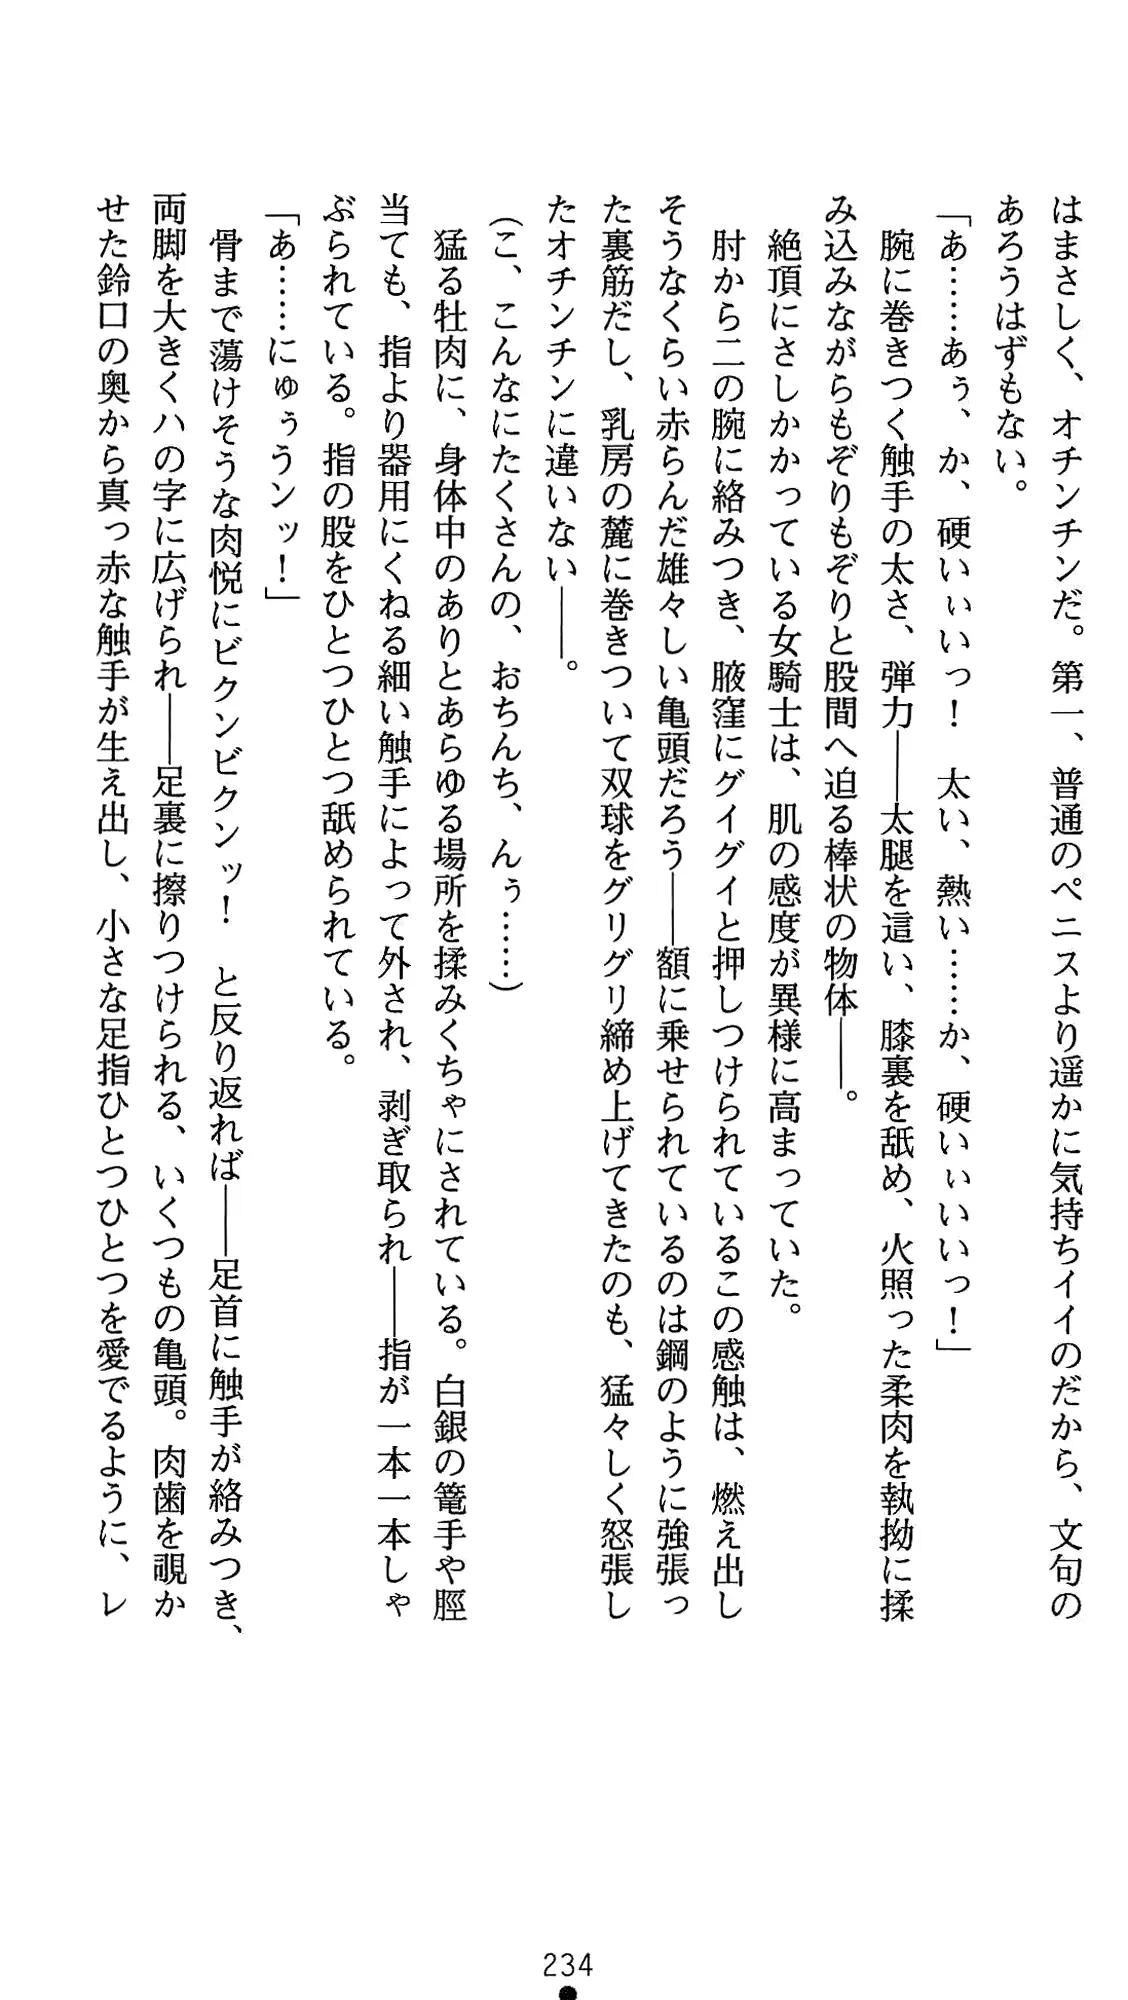 はまさしく、オチンチンだ。第一、普通のペニスより遥かに気持ちイイのだから、文句の
あろうはずもない。
「あ……あぅ、か、硬いぃいっ！　太い、熱い……か、硬いぃいいっ！」
　腕に巻きつく触手の太さ、弾力――太腿を這い、膝裏を舐め、火照った柔肉を執拗に揉
み込みながらもぞりもぞりと股間へ迫る棒状の物体――。
　絶頂にさしかかっている女騎士は、肌の感度が異様に高まっていた。
　肘から二の腕に絡みつき、腋窪にグイグイと押しつけられているこの感触は、燃え出し
そうなくらい赤らんだ雄々しい亀頭だろう――額に乗せられているのは鋼のように強張っ
た裏筋だし、乳房の麓に巻きついて双球をグリグリ締め上げてきたのも、猛々しく怒張し
たオチンチンに違いない――。
（こ、こんなにたくさんの、おちんち、んぅ……）
　猛る牡肉に、身体中のありとあらゆる場所を揉みくちゃにされている。白銀の篭手や脛
当ても、指より器用にくねる細い触手によって外され、剥ぎ取られ――指が一本一本しゃ
ぶられている。指の股をひとつひとつ舐められている。
「あ……にゅぅうンッ！」
　骨まで蕩けそうな肉悦にビクンビクンッ！　と反り返れば――足首に触手が絡みつき、
両脚を大きくハの字に広げられ――足裏に擦りつけられる、いくつもの亀頭。肉歯を覗か
せた鈴口の奥から真っ赤な触手が生え出し、小さな足指ひとつひとつを愛でるように、レ
234